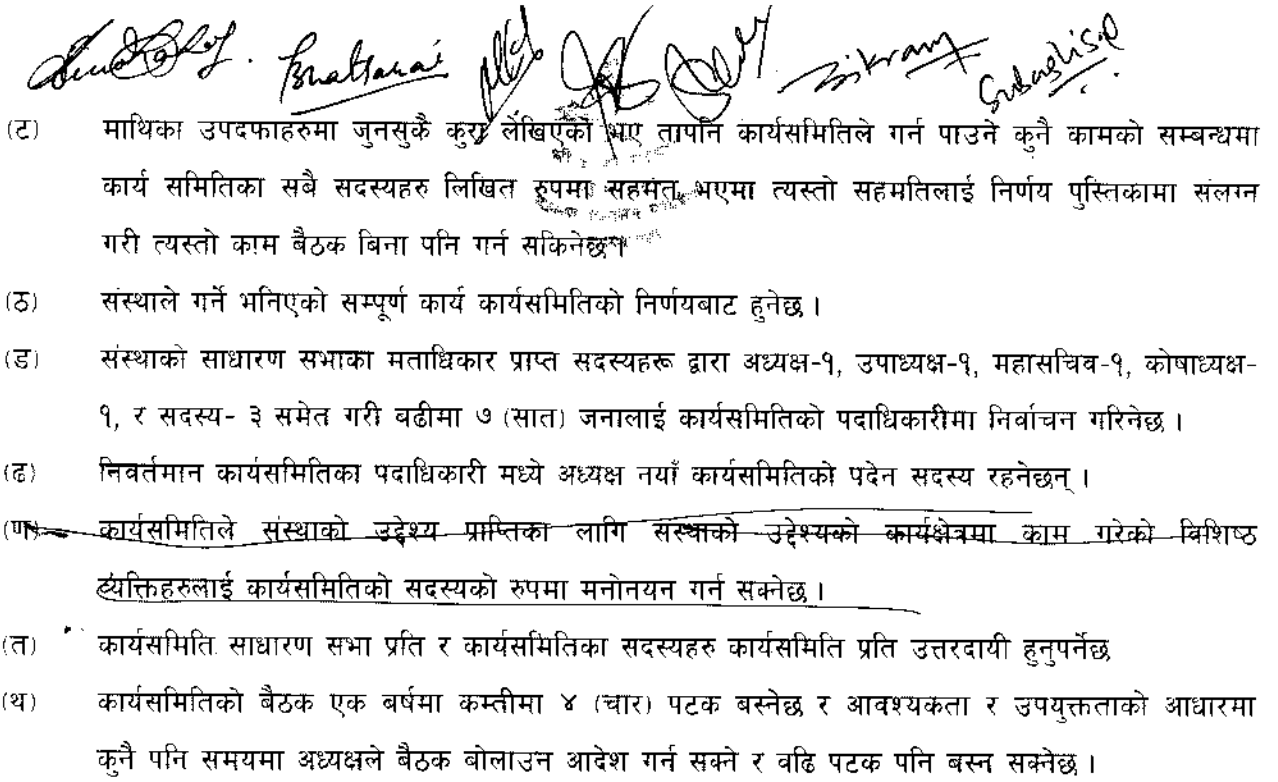 Bhattarai Bikram
(ट) माथिका उपदफाहरुमा जुनसुकै कुरा लेखिएको भए तापनि कार्यसमितिले गर्न पाउने कुनै कामको सम्बन्धमा
कार्य समितिका सबै सदस्यहरु लिखित रुपमा सहमत भएमा त्यस्तो सहमतिलाई निर्णय पुस्तिकामा संलग्न
गरी त्यस्तो काम बैठक बिना पनि गर्न सकिनेछ।
(ठ) संस्थाले गर्ने भनिएको सम्पूर्ण कार्य कार्यसमितिको निर्णयबाट हुनेछ ।
(ड) संस्थाको साधारण सभाका मताधिकार प्राप्त सदस्यहरू द्वारा अध्यक्ष-१, उपाध्यक्ष-१, महासचिव-१, कोषाध्यक्ष-
१, र सदस्य- ३ समेत गरी बढीमा ७ (सात) जनालाई कार्यसमितिको पदाधिकारीमा निर्वाचन गरिनेछ ।
(ढ) निवर्तमान कार्यसमितिका पदाधिकारी मध्ये अध्यक्ष नयाँ कार्यसमितिको पदेन सदस्य रहनेछन् ।
(ण) कार्यसमितिले संस्थाको उद्देश्य प्राप्तिका लागि संस्थाको उद्देश्यको कार्यक्षेत्रमा काम गरेको विशिष्ठ
व्यक्तिहरुलाई कार्यसमितिको सदस्यको रुपमा मनोनयन गर्न सक्नेछ ।
(त) कार्यसमिति साधारण सभा प्रति र कार्यसमितिका सदस्यहरु कार्यसमिति प्रति उत्तरदायी हुनुपर्नेछ
(थ) कार्यसमितिको बैठक एक बर्षमा कम्तीमा ४ (चार) पटक बस्नेछ र आवश्यकता र उपयुक्तताको आधारमा
कुनै पनि समयमा अध्यक्षले बैठक बोलाउन आदेश गर्न सक्ने र वढि पटक पनि बस्न सक्नेछ ।